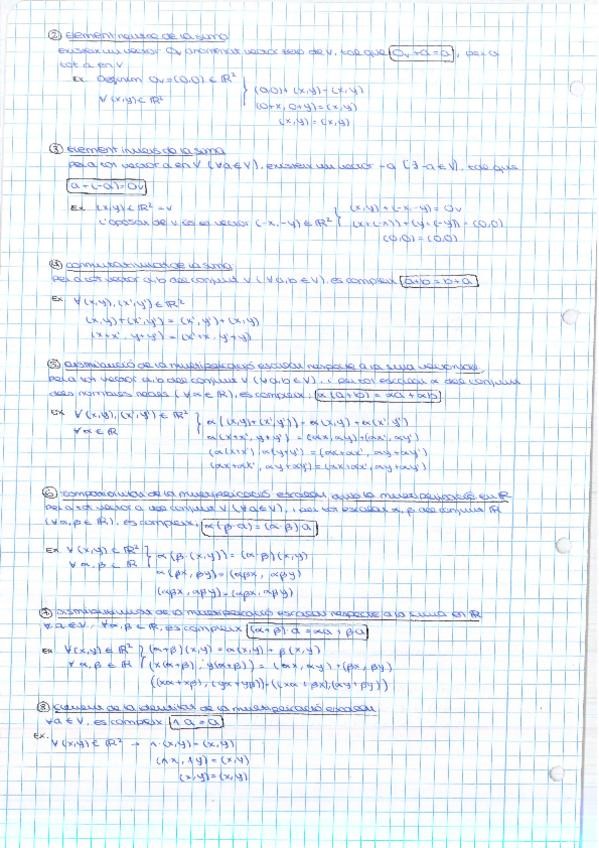 ② element neutre de la suma
existeix un vector 0v anomenat vector zero de V, tal que 0v + a = a, per a
tot a en V
Ex Definim 0v = (0,0) ∈ ℝ² (0,0) + (x,y) = (x,y)
∀(x,y) ∈ ℝ² (0+x, 0+y) = (x,y)
(x,y) = (x,y)
③ element invers de la suma
per a tot vector a en V (∀a ∈ V), existeix un vector -a (∃ -a ∈ V), tal que
a + (-a) = 0v
Ex (x,y) ∈ ℝ² = v (x,y) + (-x,-y) = 0v
L'oposat de v és el vector (-x,-y) ∈ ℝ² (x+(-x)) + (y+(-y)) = (0,0)
(0,0) = (0,0)
④ commutativitat de la suma
per a tot vector a,b del conjunt V (∀a,b ∈ V), es compleix a+b = b+a
Ex ∀(x,y),(x',y') ∈ ℝ²
(x,y)+(x',y') = (x',y')+(x,y)
(x+x', y+y') = (x'+x, y'+y)
⑤ distribució de la multiplicació escalar respecte a la suma vectorial
per a tot vector a,b del conjunt V (∀a,b ∈ V), i per tot escalar α del conjunt
dels nombres reals (∀α ∈ ℝ), es compleix α(a+b) = αa + αb
Ex ∀(x,y),(x',y') ∈ ℝ² α((x,y)+(x',y')) = α(x,y)+α(x',y')
∀α ∈ ℝ α(x+x', y+y') = (αx,αy)+(αx',αy')
(α(x+x'), α(y+y')) = (αx+αx', αy+αy')
(αx+αx', αy+αy') = (αx+αx', αy+αy')
⑥ compatibilitat de la multiplicació escalar amb la multiplicació en ℝ
per a tot vector a del conjunt V (∀a ∈ V), i per tot escalar α, β del conjunt ℝ
(∀α,β ∈ ℝ), es compleix α(β·a) = (α·β)a
Ex ∀(x,y) ∈ ℝ² α(β·(x,y)) = (α·β)(x,y)
∀α,β ∈ ℝ α(βx, βy) = (αβx, αβy)
(αβx, αβy) = (αβx, αβy)
⑦ distributivitat de la multiplicació escalar respecte a la suma en ℝ
∀a ∈ V, ∀α,β ∈ ℝ, es compleix (α+β)·a = αa + βa
Ex ∀(x,y) ∈ ℝ² (α+β)(x,y) = α(x,y) + β(x,y)
∀α,β ∈ ℝ (x(α+β), y(α+β)) = (αx, αy)+(βx, βy)
((xα+xβ), (yα+yβ)) = ((xα+βx),(αy+βy))
⑧ de la identitat de la multiplicació escalar
∀a ∈ V, es compleix 1·a = a
Ex. ∀(x,y) ∈ ℝ² → 1·(x,y) = (x,y)
(1x, 1y) = (x,y)
(x,y) = (x,y)